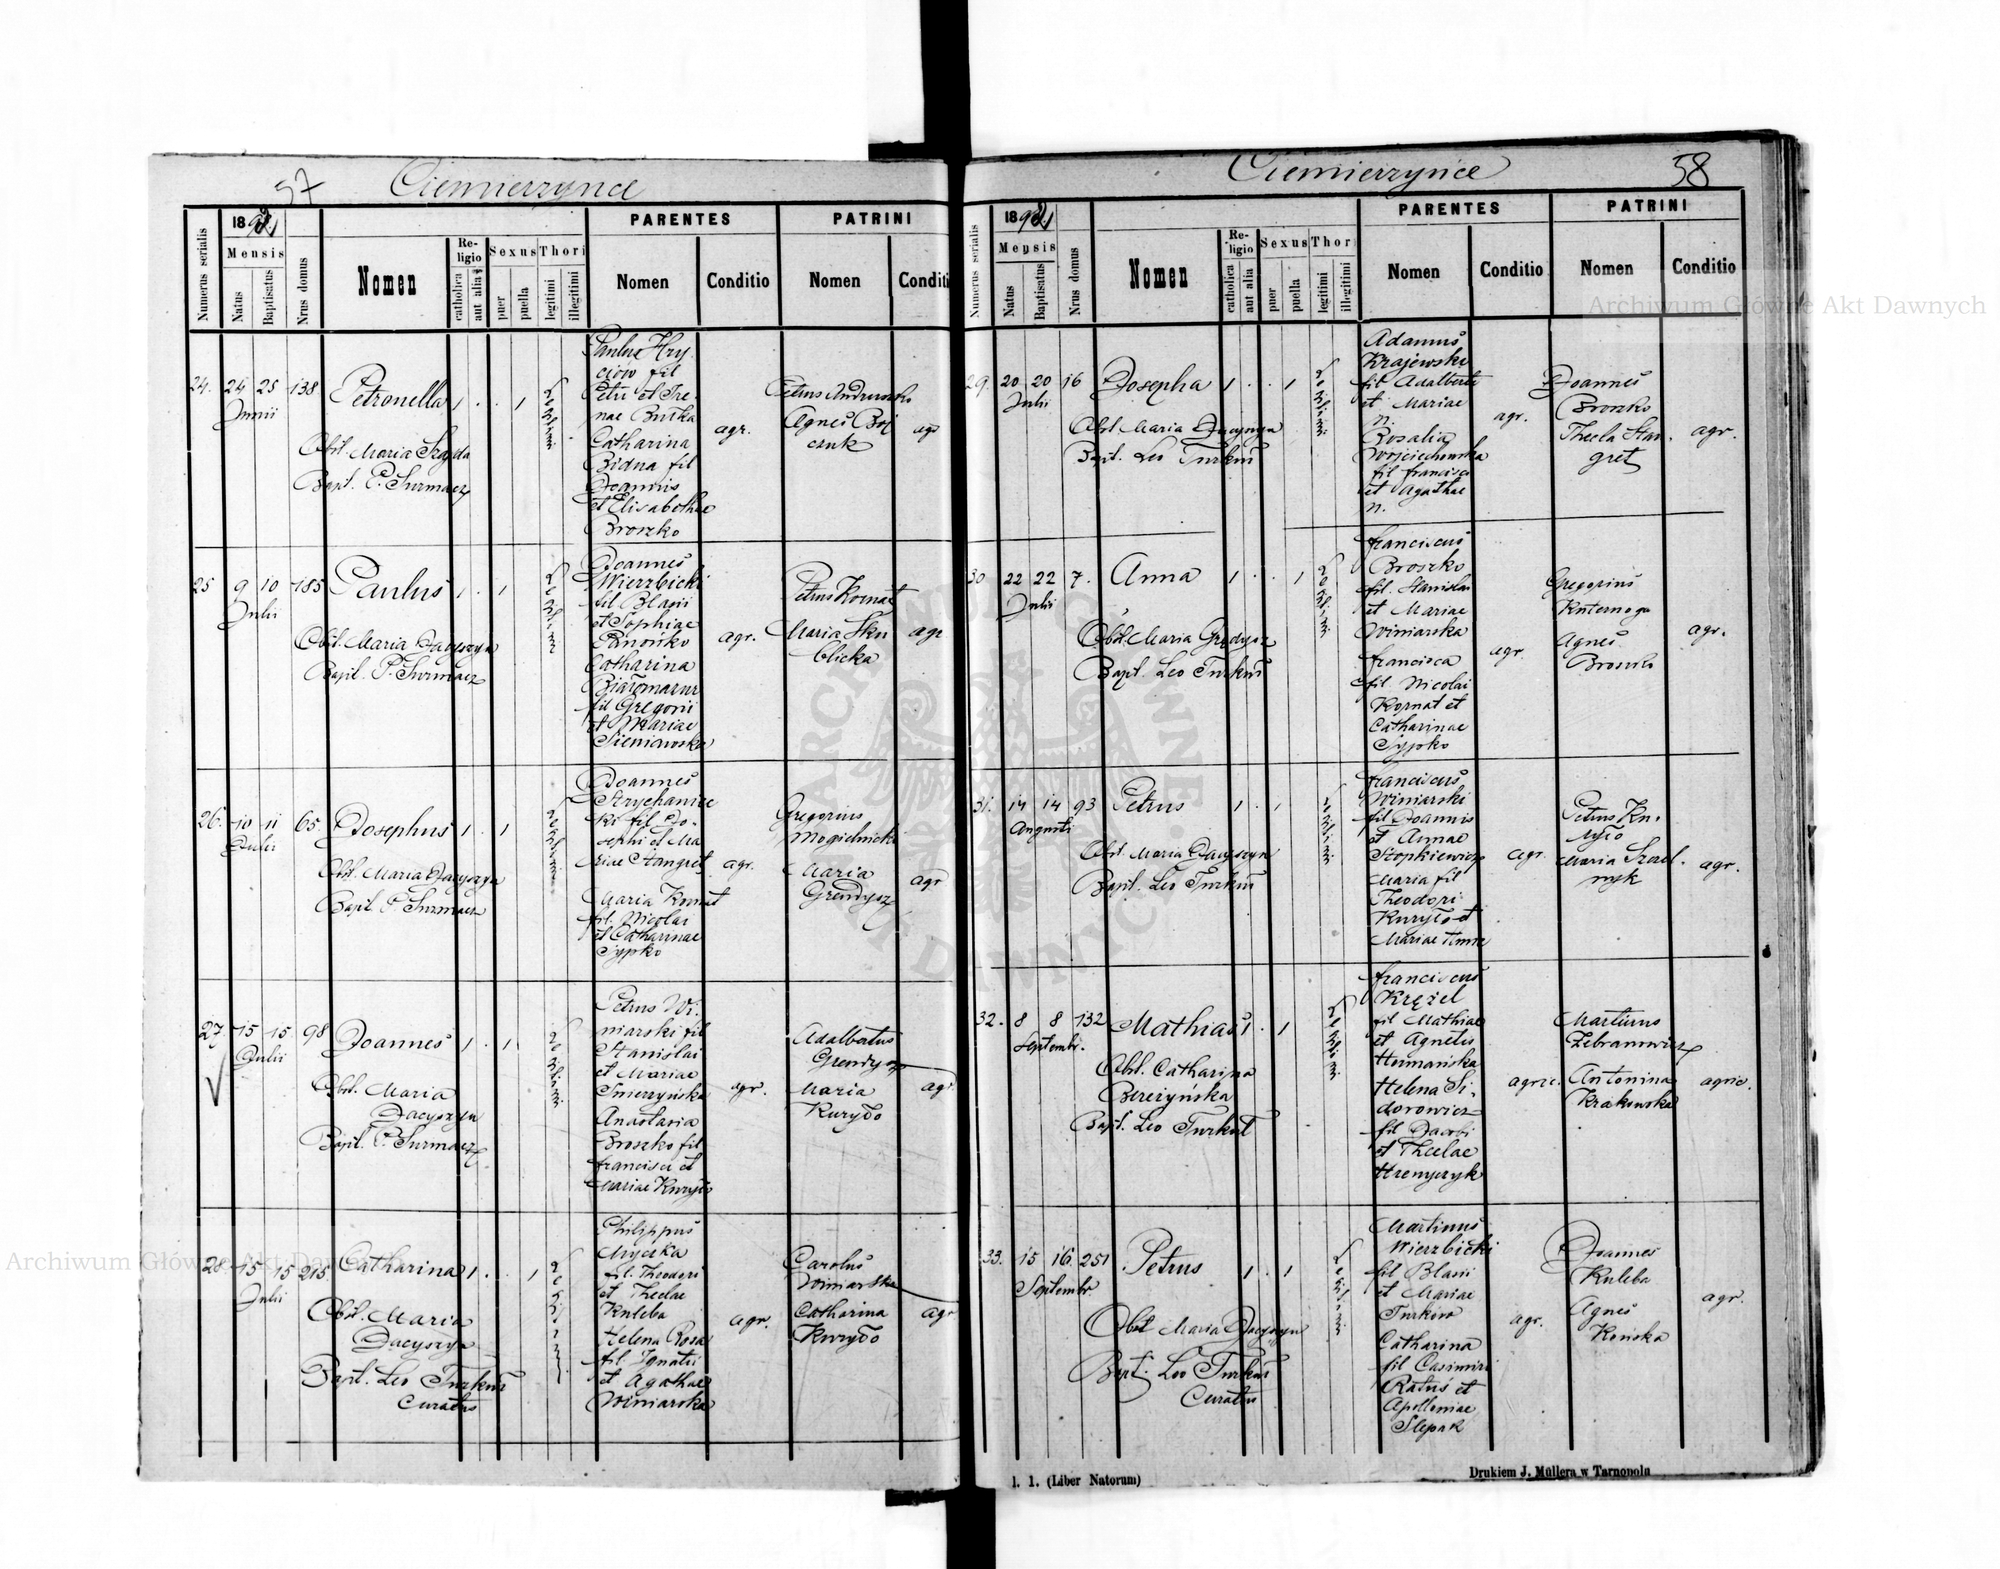 57 Ciemierzynce
Numerus serialis
18
Mensis
Natus
Baptisatus
Nrus domus
Nomen
Religio
catholica
aut alia
Sexus
puer
puella
Thori
legitimi
illegitimi
PARENTES
Nomen
Conditio
PATRINI
Nomen
Conditi
24. 24 25 138 Petronella 1 . . 1
Junii
Obst. Maria
Bapt. P. Surmacz
Petri et Ire-
nae
Catharina
Bidna fil
Joannis
et Elisabethae
Broszko
agr.
Petrus
Agnes Boj
czuk
agr
25 9 10 185 Paulus 1 . 1
Julii
Obst. Maria Dacyszyn
Bapt. P. Surmacz
Joannes
Wierzbicki
fil Blasii
et Sophiae
Catharina
fil Gregorii
et Mariae
Sieniawska
agr.
Petrus Kornat
Maria Sku
blicka
agr
26. 10 11 65 Josephus 1 . 1
Julii
Obst. Maria Dacyszyn
Bapt. P. Surmacz
Joannes
Strychanice
ki fil Jo-
sephi et Ma
riae Stangret
Maria Kornat
fil. Nicolai
et Catharinae
Sypko
agr.
Gregorius
Mogielnicki
Maria
Grendysz
agr
27 15 15 98 Joannes 1 . 1
Julii
Obst. Maria
Dacyszyn
Bapt. P. Surmacz
Petrus Wi-
niarski fil
Stanislai
et Mariae
Smierzyńska
Anastasia
Broszko fil
Francisci et
Mariae Kuryło
agr.
Adalbertus
Grendysz
Maria
Kuryło
agr
28. 15 15 215. Catharina 1 . . 1
Julii
Obst. Maria
Dacyszyn
Bapt. Leo Turkuł
Curatus
Philippus
Myczka
fil. Theodori
et Theclae
Kuleba
Helena Rosa
fil. Ignatii
et Agathae
Winiarska
agr.
Carolus
Winiarska
Catharina
Kuryło
agr
Ciemierzynce 58
Numerus serialis
18
Mensis
Natus
Baptisatus
Nrus domus
Nomen
Religio
catholica
aut alia
Sexus
puer
puella
Thor
legitimi
illegitimi
PARENTES
Nomen
Conditio
PATRINI
Nomen
Conditio
29. 20 20 16 Josepha 1 . . 1
Julii
Obst. Maria Dacyszyn
Bapt. Leo Turkuł
Adamus
Krajewski
fil Adalberti
et Mariae
n.
Rosalia
Wojciechowska
fil Francisci
et Agathae
n.
agr.
Joannes
Broszko
Thecla Stan-
gret
agr.
30 22 22 7. Anna 1 . . 1
Julii
Obst. Maria Grędysz
Bapt. Leo Turkuł
Franciscus
Broszko
fil. Stanislai
et Mariae
Winiarska
Francisca
fil. Nicolai
Kornat et
Catharinae
Sypko
agr.
Gregorius
Kuternoga
Agnes
Broszko
agr.
31. 14 14 93 Petrus 1 . 1
Augusti
Obst. Maria Dacyszyn
Bapt. Leo Turkuł
Franciscus
Winiarski
fil Joannis
et Annae
Stopkiewicz
Maria fil
Theodori
Kuryło et
Mariae
agr.
Petrus Ku-
ryło
Maria
agr.
32. 8 8 132 Mathias 1 . 1
Septembr.
Obst. Catharina
Bereżyńska
Bapt. Leo Turkuł
Franciscus
Krężel
fil Mathiae
et Agnetis
Hermańska
Helena Si-
dorowicz
fil Jacobi
et Theclae
Hrenyczyk
agric.
Martinus
Zebranowicz
Antonina
Krakowska
agric.
33. 15 16 251 Petrus 1 . 1
Septembr
Obst Maria Dacyszyn
Bapt. Leo Turkuł
Curatus
Martinus
Wierzbicki
fil Blasii
et Mariae
Turków
Catharina
fil Casimiri
Ratuś et
Apolloniae
Slepak
agr.
Joannes
Kuleba
Agnes
Końska
agr.
l. 1. (Liber Natorum)
Drukiem J. Müllera w Tarnopolu
Archiwum Główne Akt Dawnych
Archiwum Główne Akt Dawnych